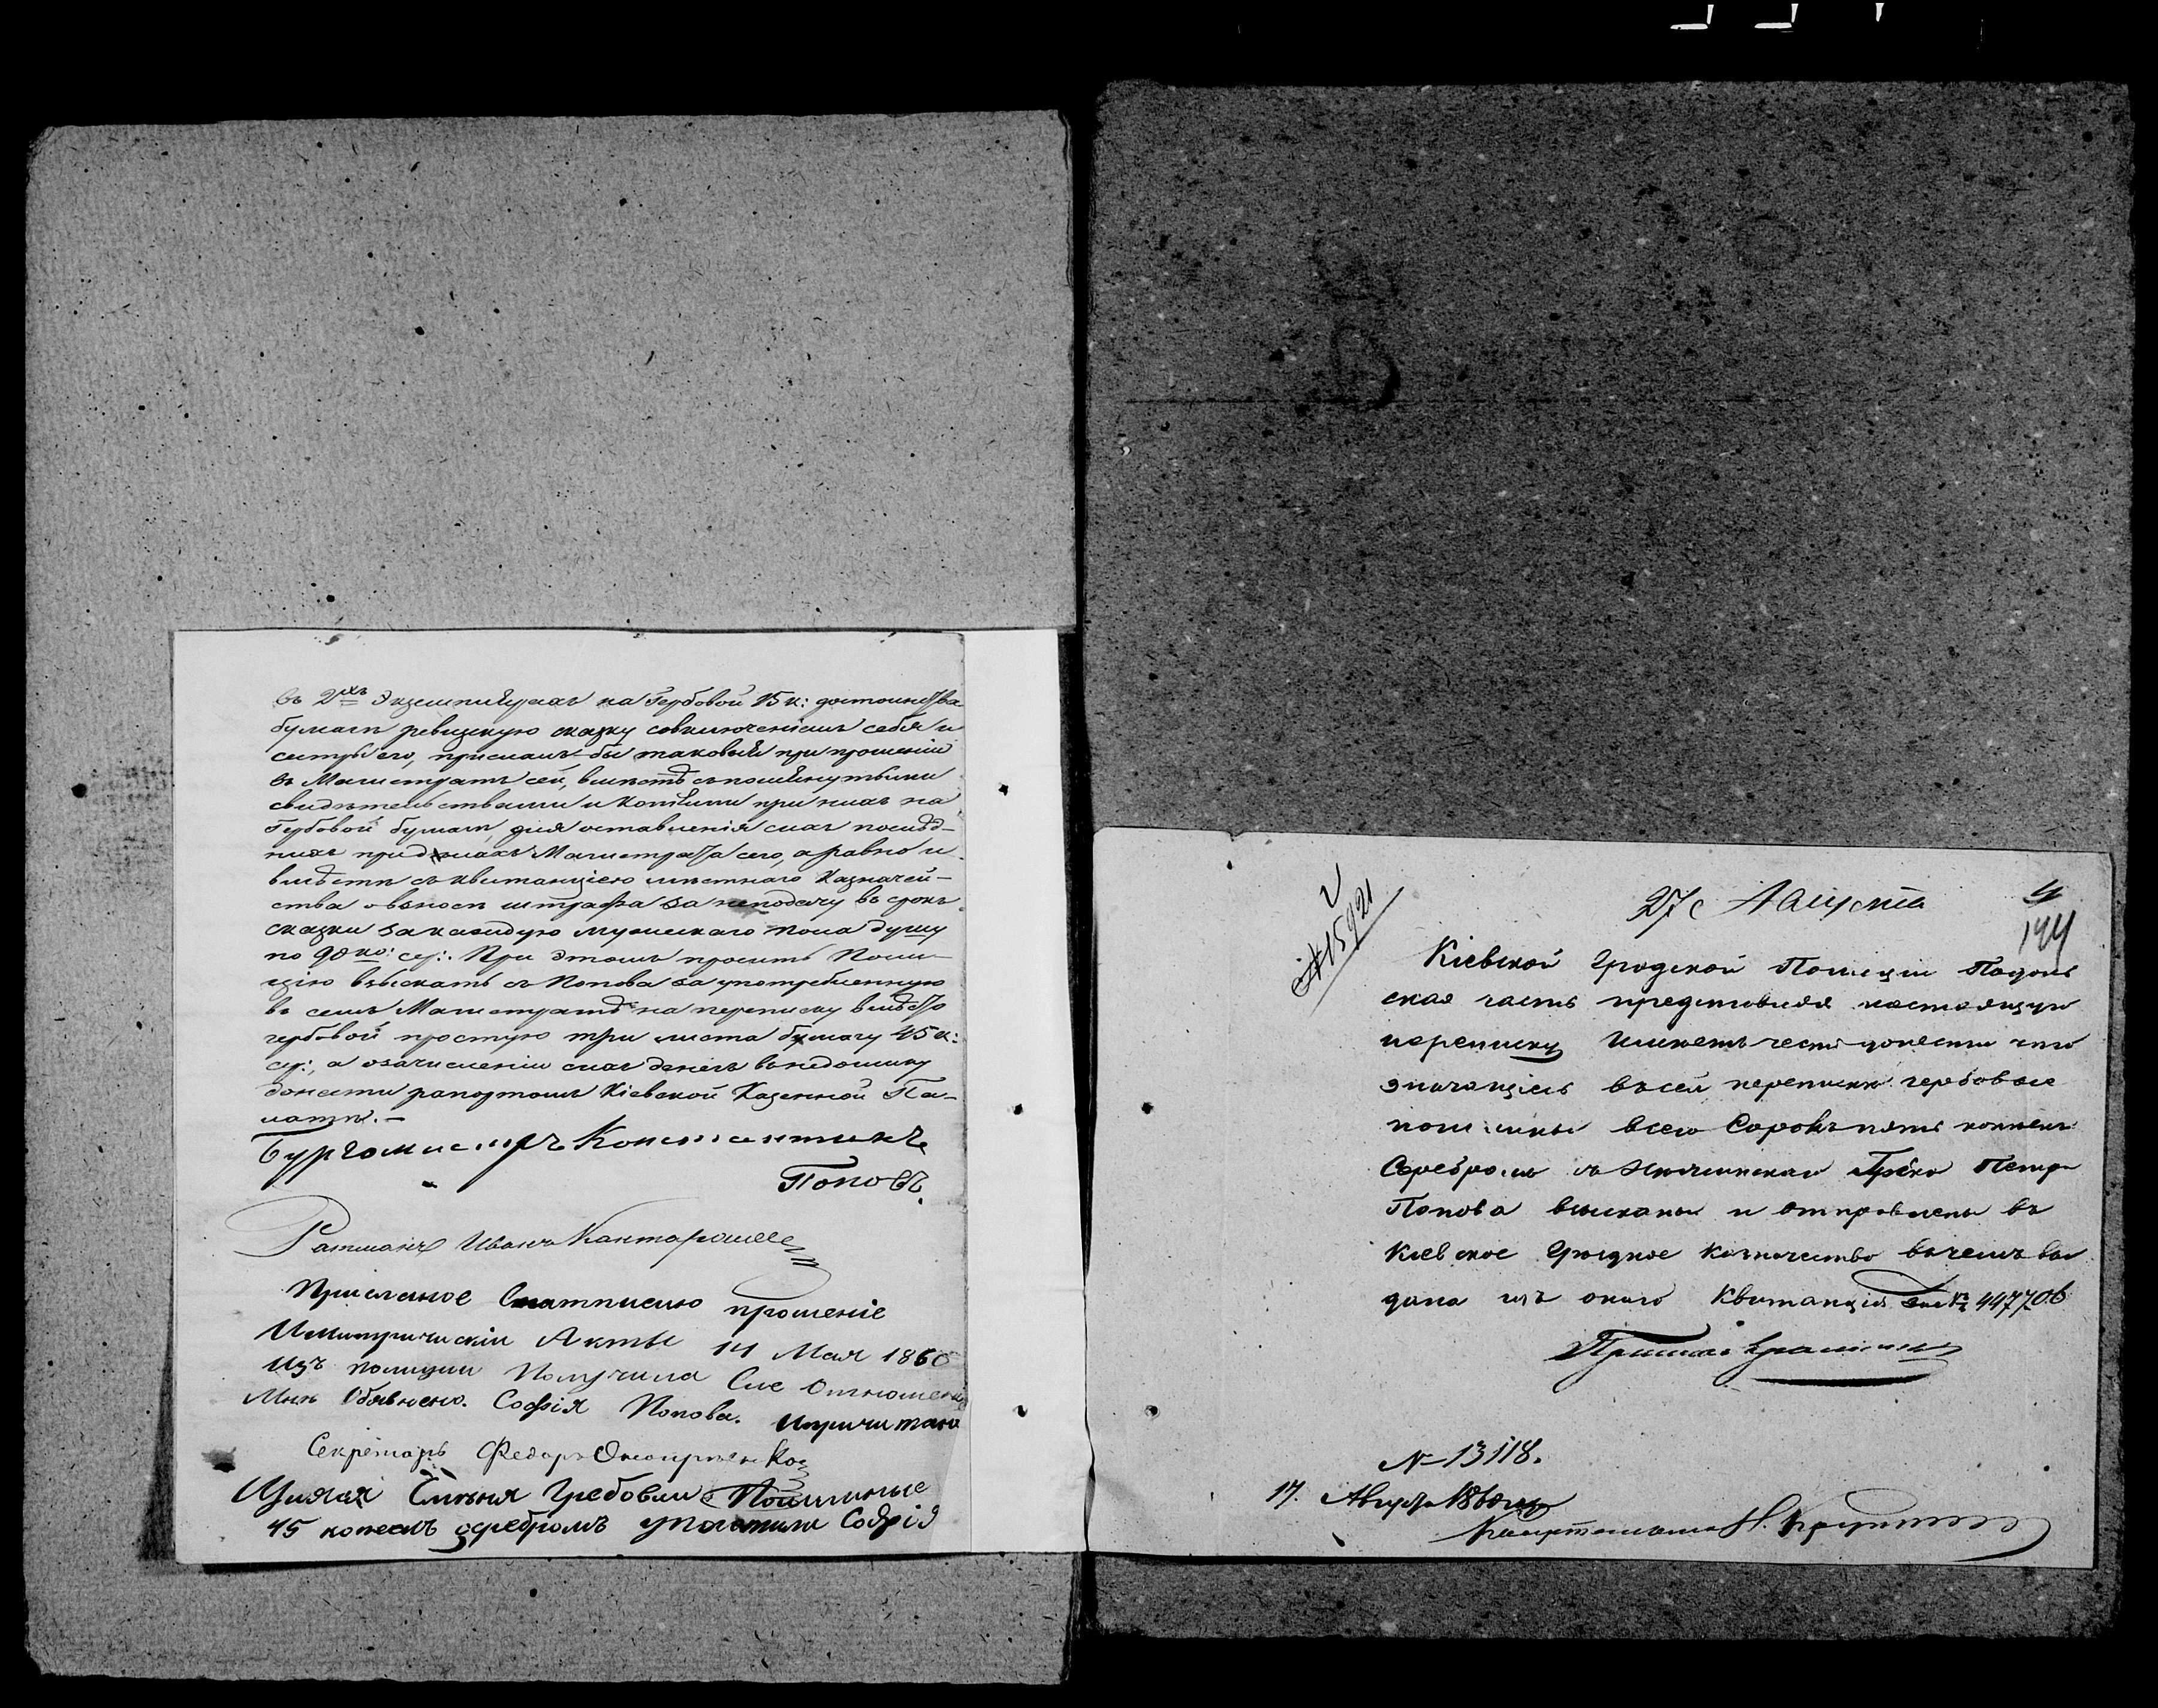 въ 2хъ Экземплярахъ на Гербовой 15 к: достоинства
бумагѣ ревизскую сказку совключеніемъ себя и
сестръ его, прислалъ бы таковый при прошеніи
въ Магистратъ сей, вмѣстѣ съ помянутыми
свидѣтельствами и копіями при нихъ на
Гербовой бумагѣ, для оставленія сихъ послѣд-
нихъ при дѣлахъ Магистрата сего, а равно и
вмѣстѣ съ квитанціею мѣстнаго Казначей-
ства о взносѣ штрафа за неподачу въ срокъ
сказки за каждую мужескаго пола душу
по 90 ко: сер:. При этомъ проситъ Поли-
цію взыскать съ Попова за употребленную
въ семъ Магистратѣ на переписку вмѣсто
гербовой простую три листа бумагу 45 к:
сер:, а о зачисленіи сихъ денегъ въ недоимку
донести рапортомъ Кіевской Казенной Па-
латѣ.-
Бургомистръ Константинъ
Поповъ.
Ратманъ Иванъ
Присланое прошеніе
Акты 14 Мая 1860
изъ полиции Получила Сие Отношеніе
Мнѣ Обявлено. Софія Попова. и причитано
Секретарь Федоръ
Гребовыи Пошлиные
45 копеекъ серебромъ уплатила Софія
27 Августа
4
144
№ 15921
Кіевской Градской Полиции Подоль
ская часть представляя настоящую
переписку имѣетъ честь донести что
значащіесь въ сей перепискѣ гербовые
пошлины всего Сорокъ пять копѣекъ
Серебромъ съ Нѣжинскаго Грека Петра
Попова взысканы и отправлены въ
Кіевское Уѣздное Казначество въ чемъ вы
дана изъ онаго Квитанція за № 447706
Приставъ
№ 13118.
17. Августа 1860 года
Н.